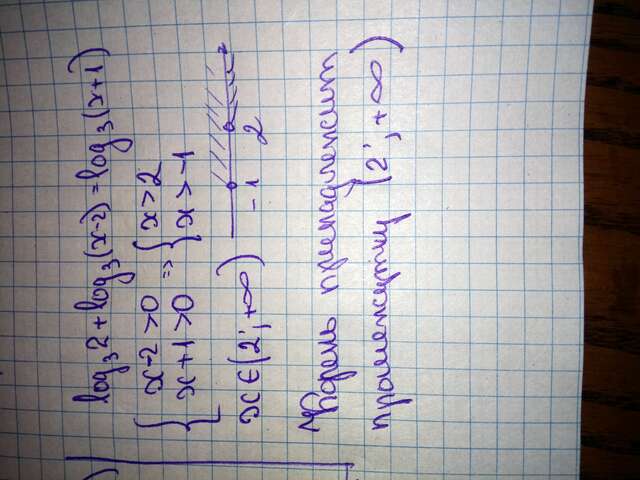 log₃2 + log₃(x-2) = log₃(x+1)
{ x-2 > 0 => { x > 2
{ x+1 > 0 { x > -1
-1 2
x ∈ (2; +∞)
Корень принадлежит
промежутку (2; +∞)